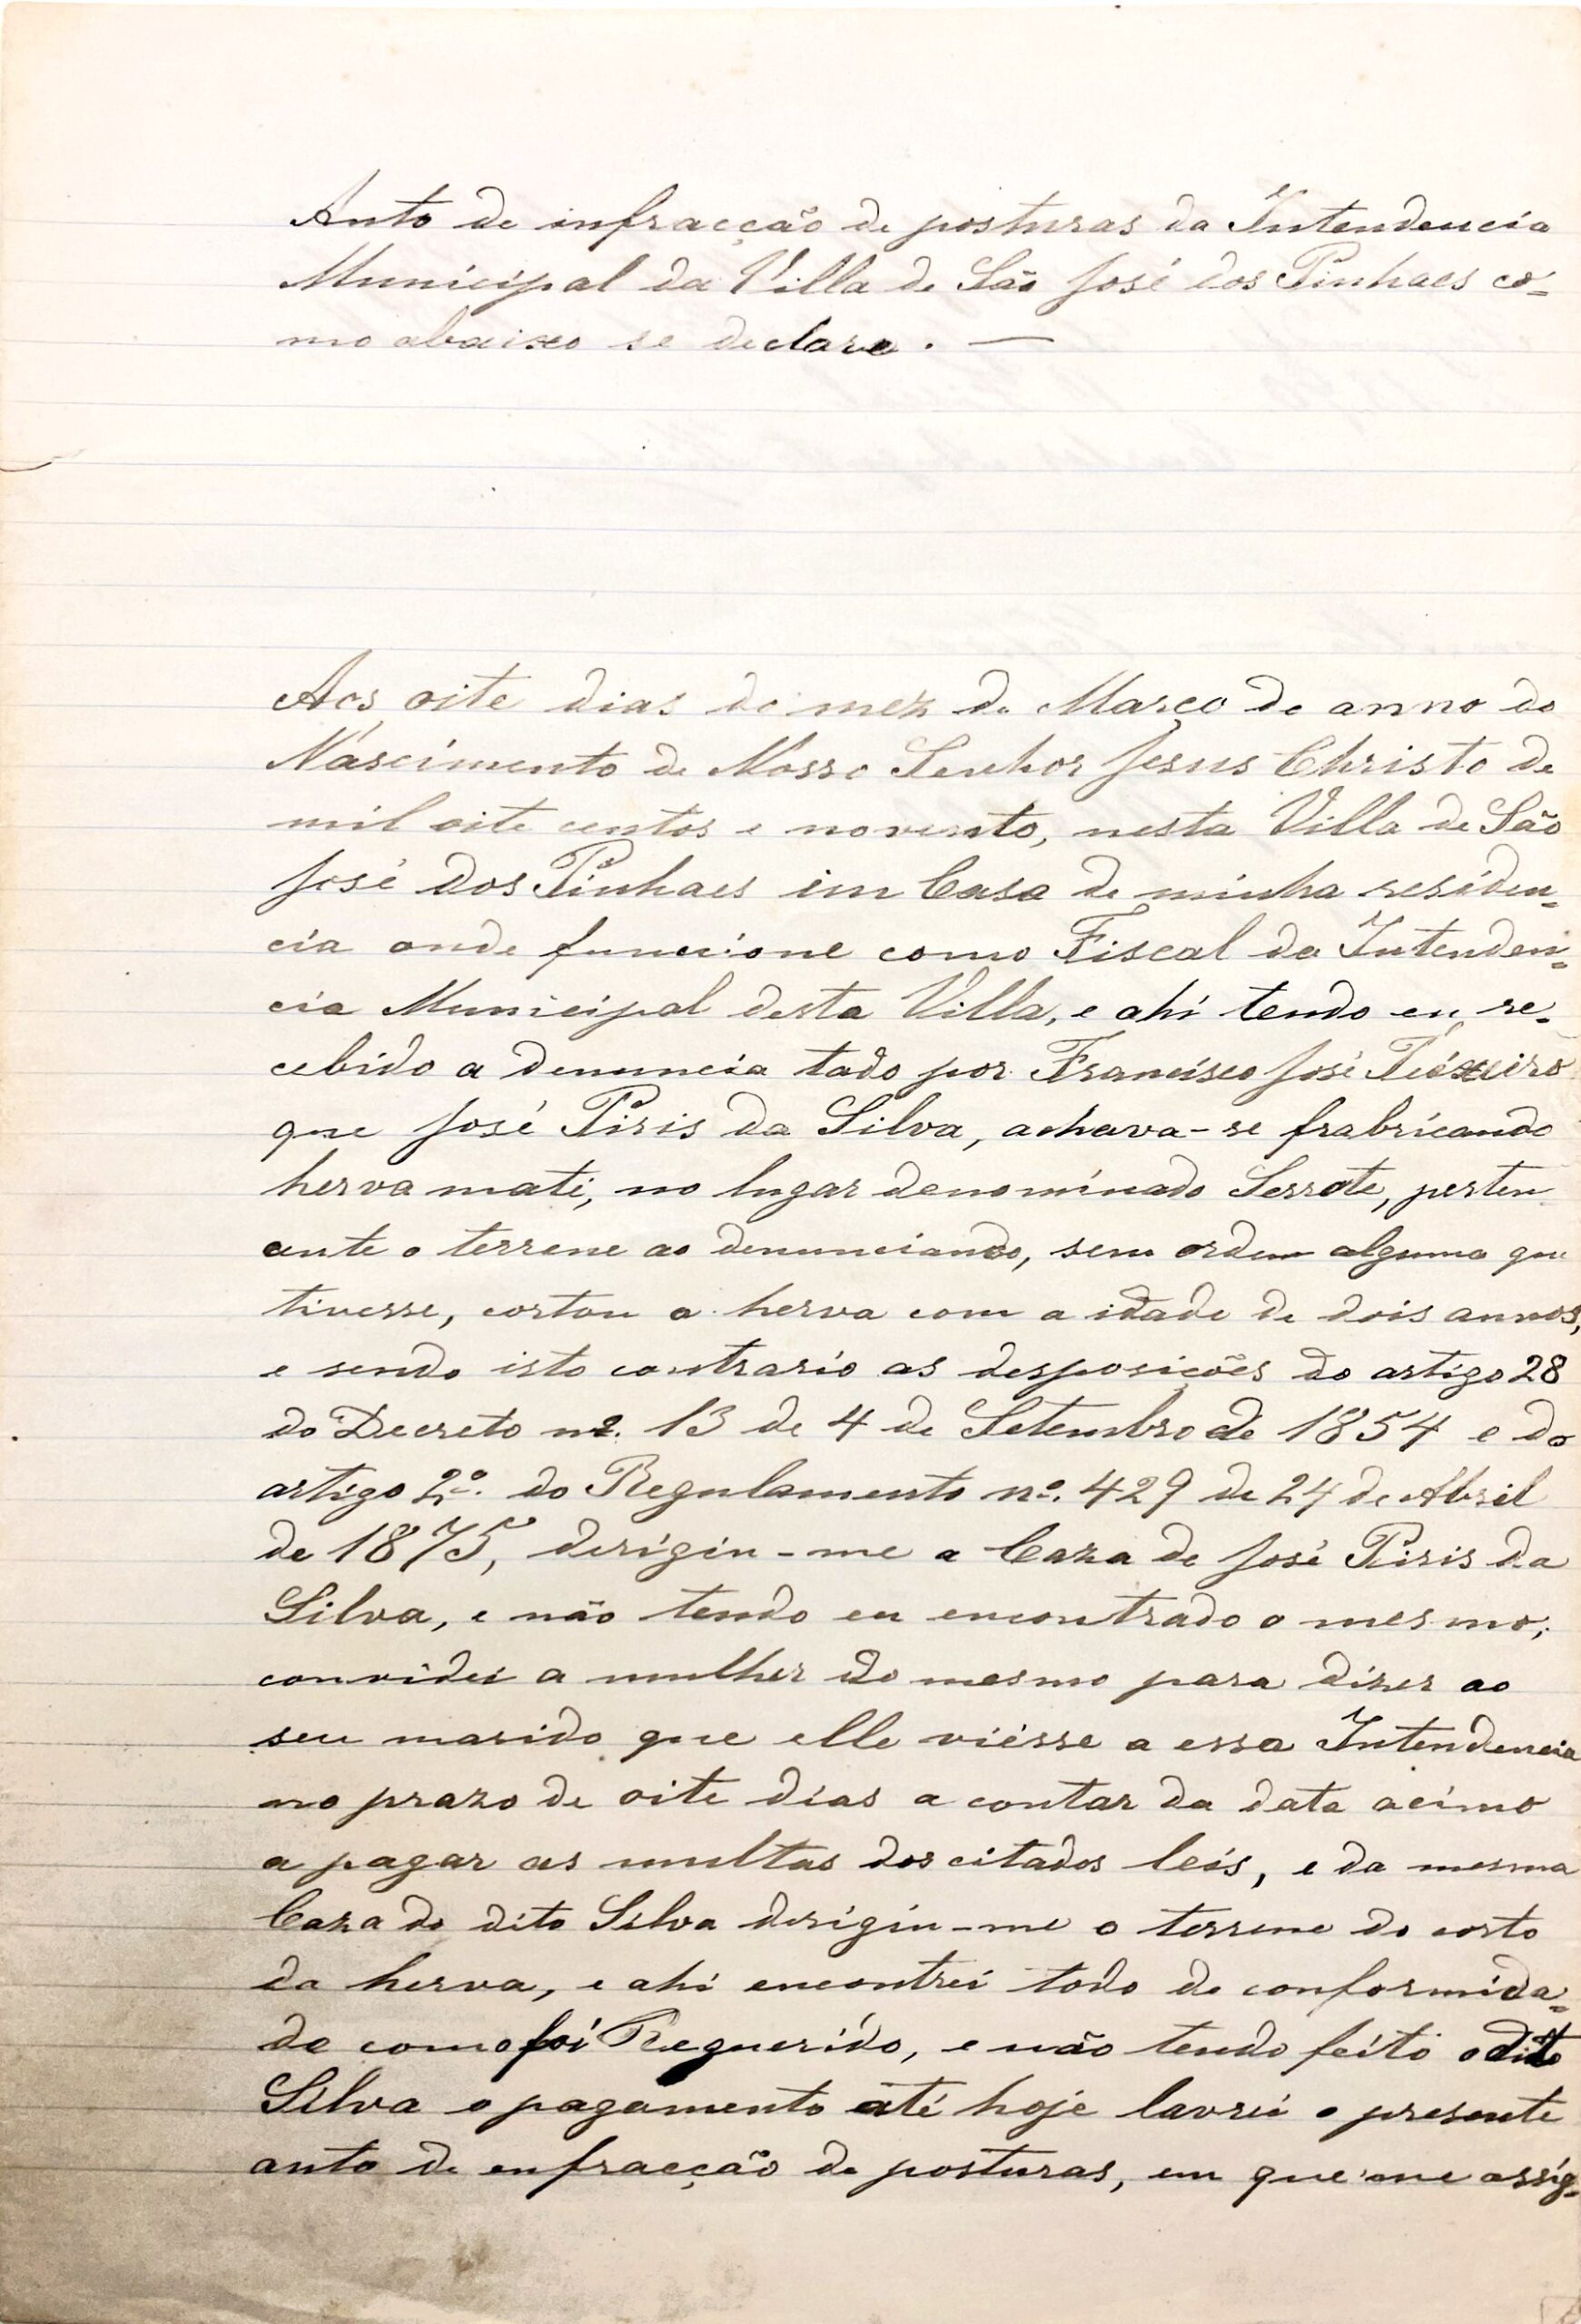 Auto de infracção de posturas da Intendencia
Municipal da Villa de São José dos Pinhaes co=
mo abaixo se declara. —
Aos oite dias do mez de Março do anno do
Nascimento de Nosso Senhor Jesus Christo de
mil oite centos e novento, nesta Villa de São
José dos Pinhaes em Casa de minha residen=
cia onde funccione como Fiscal da Intenden=
cia Municipal desta Villa, e ahi tendo eu re-
cebido a denuncia tado por Francisco José Teixeira
que José Piris da Silva, achava-se frabricando
herva mati, no lugar denominado Serrote, perten
cente o terrene ao denunciando, sem ordem alguma que
tivesse, cortou a herva com a idade de dois annos,
e sendo isto contrario as desposições do artigo 28
do Decreto nº. 13 de 4 de Setembro de 1854 e do
artigo 2º. do Regulamento nº. 429 de 24 de Abril
de 1875, derigiu-me a Caza de José Piris da
Silva, e não tendo eu encontrado o mesmo,
convidei a mulher do mesmo para dizer ao
seu marido que elle viésse a essa Intendencia
no prazo de oite dias a contar da data acima
a pagar as multas dos citados leis, e da mesma
Caza do dito Silva derigiu-me o terrene do corto
da herva, e ahi encontrei todo de conformida=
de como foi Requerido, e não tendo feito o dito
Silva o pagamento até hoje lavrei o presente
auto de enfracção de posturas, em que me assig-